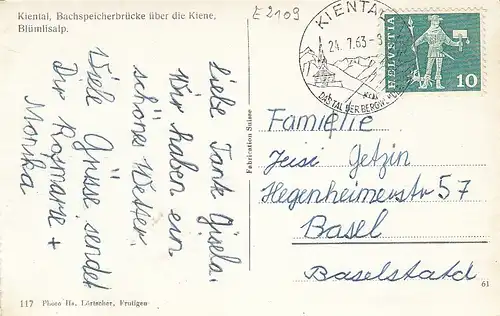 Kiental, Bachspeicherbrücke über die Kiene,
Blümlisalp.
E 2109
Liebe Tante Gisela.
Wir haben ein
schönes Wetter.
Viele Grüsse sendet
Dir Rosmarie +
Monika
117 Photo Hs. Lörtscher, Frutigen
Fabrication Suisse
KIENTAL
24.7.63-3
DAS TAL DER BERG
HELVETIA
10
Familie
Jetzin
Hegenheimerstr 57
Basel
Baselstatd
61